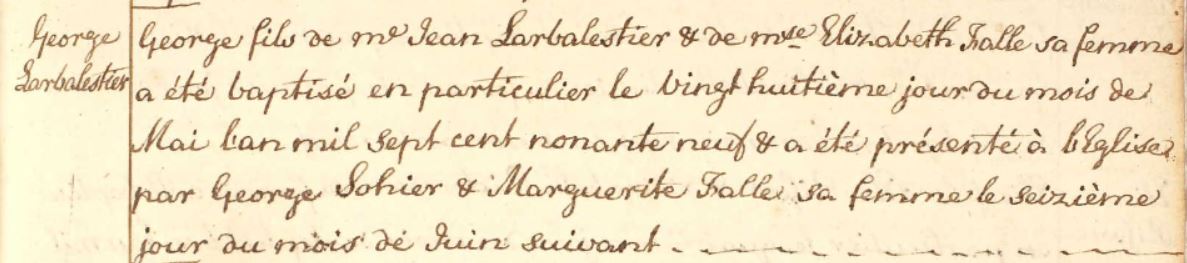 George
Larbalestier
George fils de me Jean Larbalestier & de mrse Elizabeth Falle sa femme
a été baptisé en particulier le vingt huitième jour du mois de
Mai l'an mil sept cent nonante neuf & a été présenté à l'Eglise
par George Sohier & Marguerite Falle sa femme le seizième
jour du mois de Juin suivant